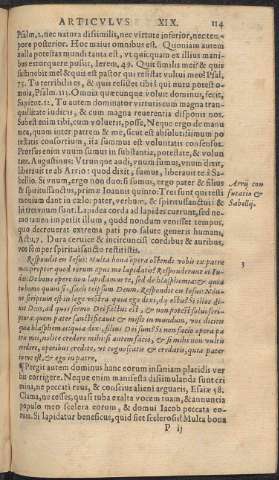 ARTICVLVS XIX. 114
Psalm. 2. nec natura dissimilis, nec virtute inferior, nec tem-
pore posterior. Hoc maius omnibus est. Quoniam autem
nulla potestas mundi tanta est, vt quicquam ex illius mani-
bus extorquere possit, Ierem. 49. Quis similis mei? & quis
sustinebit me? & quis est pastor qui resistat vultui meo? Psal.
75. Tu terribilis es, & quis resistet tibi? qui
nia, Psalm. 113. Omnia quæcunque voluit dominus, fecit,
Sapient. 12. Tu autem dominator virtutis cum magna tran-
quillitate iudicas, & cum magna reuerentia disponis nos.
Subest enim tibi, cùm volueris, posse. Neque ergo de manu
mea, quum inter patrem & me, sicut est absolutissimum po
testatis consortium, ita summus est voluntatis consensus.
Prorsus enim vnum sumus in substantia, potestate, & volun
tate. Augustinus: Vtrunque audi, vnum sumus, vnum dixit,
liberat te ab Arrio: quod dixit, sumus, liberauit te à Sa-
bellio. Si vnum, ergo non duo: si sumus, ergo pater & filius
& spiritussanctus, primæ Ioannis quinto: Tres sunt qui testi
monium dant in cælo: pater, verbum, & spiritussanctus: &
hi tres vnum sunt. Lapidea corda ad lapides currunt, sed ne-
quaquam in petit illum, quod nondum venisset tempus,
quo decreuerat extrema pati pro salute generis humani,
Act. 7. Dura ceruice & incircuncisi cordibus & auribus,
vos semper spiritui sancto restitistis.
Arrij con
futatio &
Sabellij.
Respondit eis Iesus: Multa bona opera ostendi vobis ex patre
meo: propter quod eorum opus me lapidatis? Responderunt ei Iu-
dæi: De bono opere non lapidamus te, sed de blasphemia: & quia tu
homo quum sis, facis teipsum Deum. Respondit eis Iesus: Nón-
ne scriptum est in lege vestra: quia ego dixi, dij estis? Si illos di-
xit Deos, ad quos sermo Dei factus est, & non potest solui scri-
ptura: quem pater sanctificauit & misit in mundum, vos dicitis:
quia blasphemas: quia dixi, filius Dei sum? Si non facio opera pa-
tris mei, nolite credere mihi: si autem facio, & si mihi non vultis
credere, operibus credite, vt cognoscatis & credatis, quia pater
in me est, & ego in patre.
3
¶ Pergit autem dominus hanc eorum insaniam placidis ver
bis corrigere. Neque enim manifesta dissimulanda sunt cri
mina, ne peccati reus, & conscius alieni arguaris, Esaiæ 58.
Clama, ne cesses, quasi tuba exalta vocem tuam, & annuncia
populo meo scelera eorum, & domui Iacob peccata eo-
rum. Si lapidatur beneficus, quid fiet scelerosis? Multa bona
P ij